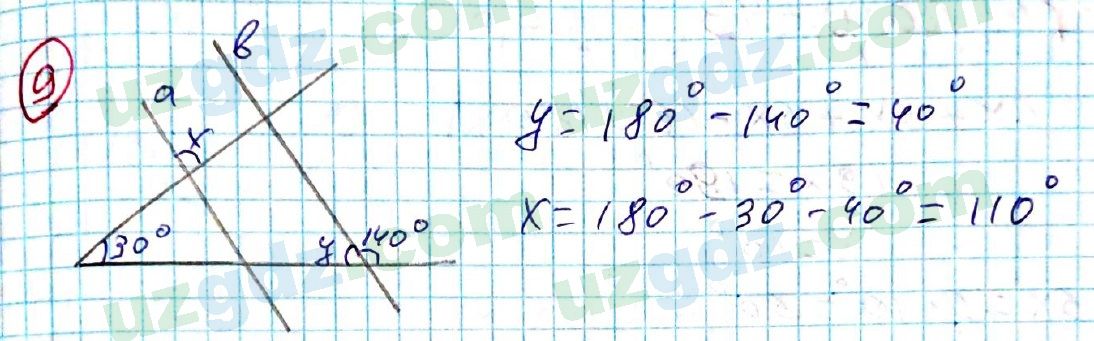 9
a
b
x
30°
y
140°
y = 180° - 140° = 40°
x = 180° - 30° - 40° = 110°
uzgdz.com
uzgdz.com
uzgdz.com
uzgdz.com